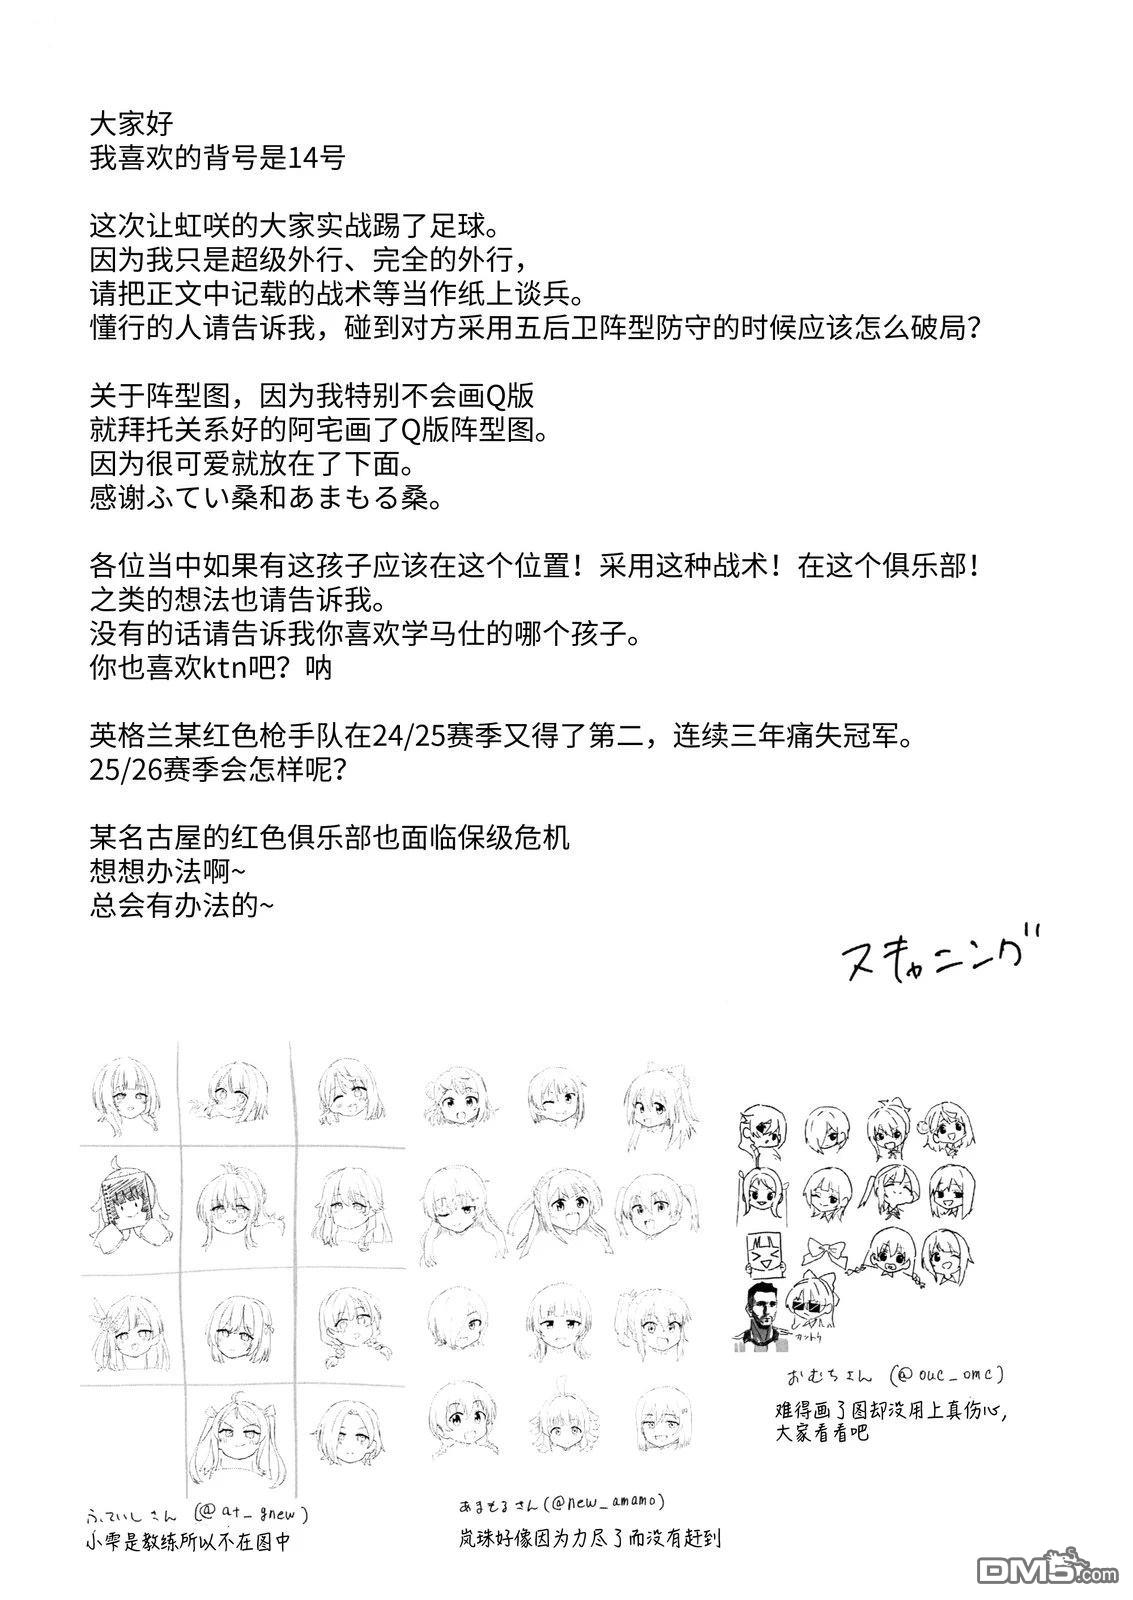 大家好
我喜欢的背号是14号
这次让虹咲的大家实战踢了足球。
因为我只是超级外行、完全的外行，
请把正文中记载的战术等当作纸上谈兵。
懂行的人请告诉我，碰到对方采用五后卫阵型防守的时候应该怎么破局？
关于阵型图，因为我特别不会画Q版
就拜托关系好的阿宅画了Q版阵型图。
因为很可爱就放在了下面。
感谢ふてい桑和あまもる桑。
各位当中如果有这孩子应该在这个位置！采用这种战术！在这个俱乐部！
之类的想法也请告诉我。
没有的话请告诉我你喜欢学马仕的哪个孩子。
你也喜欢ktn吧？呐
英格兰某红色枪手队在24/25赛季又得了第二，连续三年痛失冠军。
25/26赛季会怎样呢？
某名古屋的红色俱乐部也面临保级危机
想想办法啊~
总会有办法的~
スキャニング
カントウ
おむちさん (@ouc_omc)
难得画了图却没用上真伤心，
大家看看吧
ふていしさん (@at_gnew)
小雫是教练所以不在图中
あまもるさん(@new_amamo)
岚珠好像因为力尽了而没有赶到
DM5.com